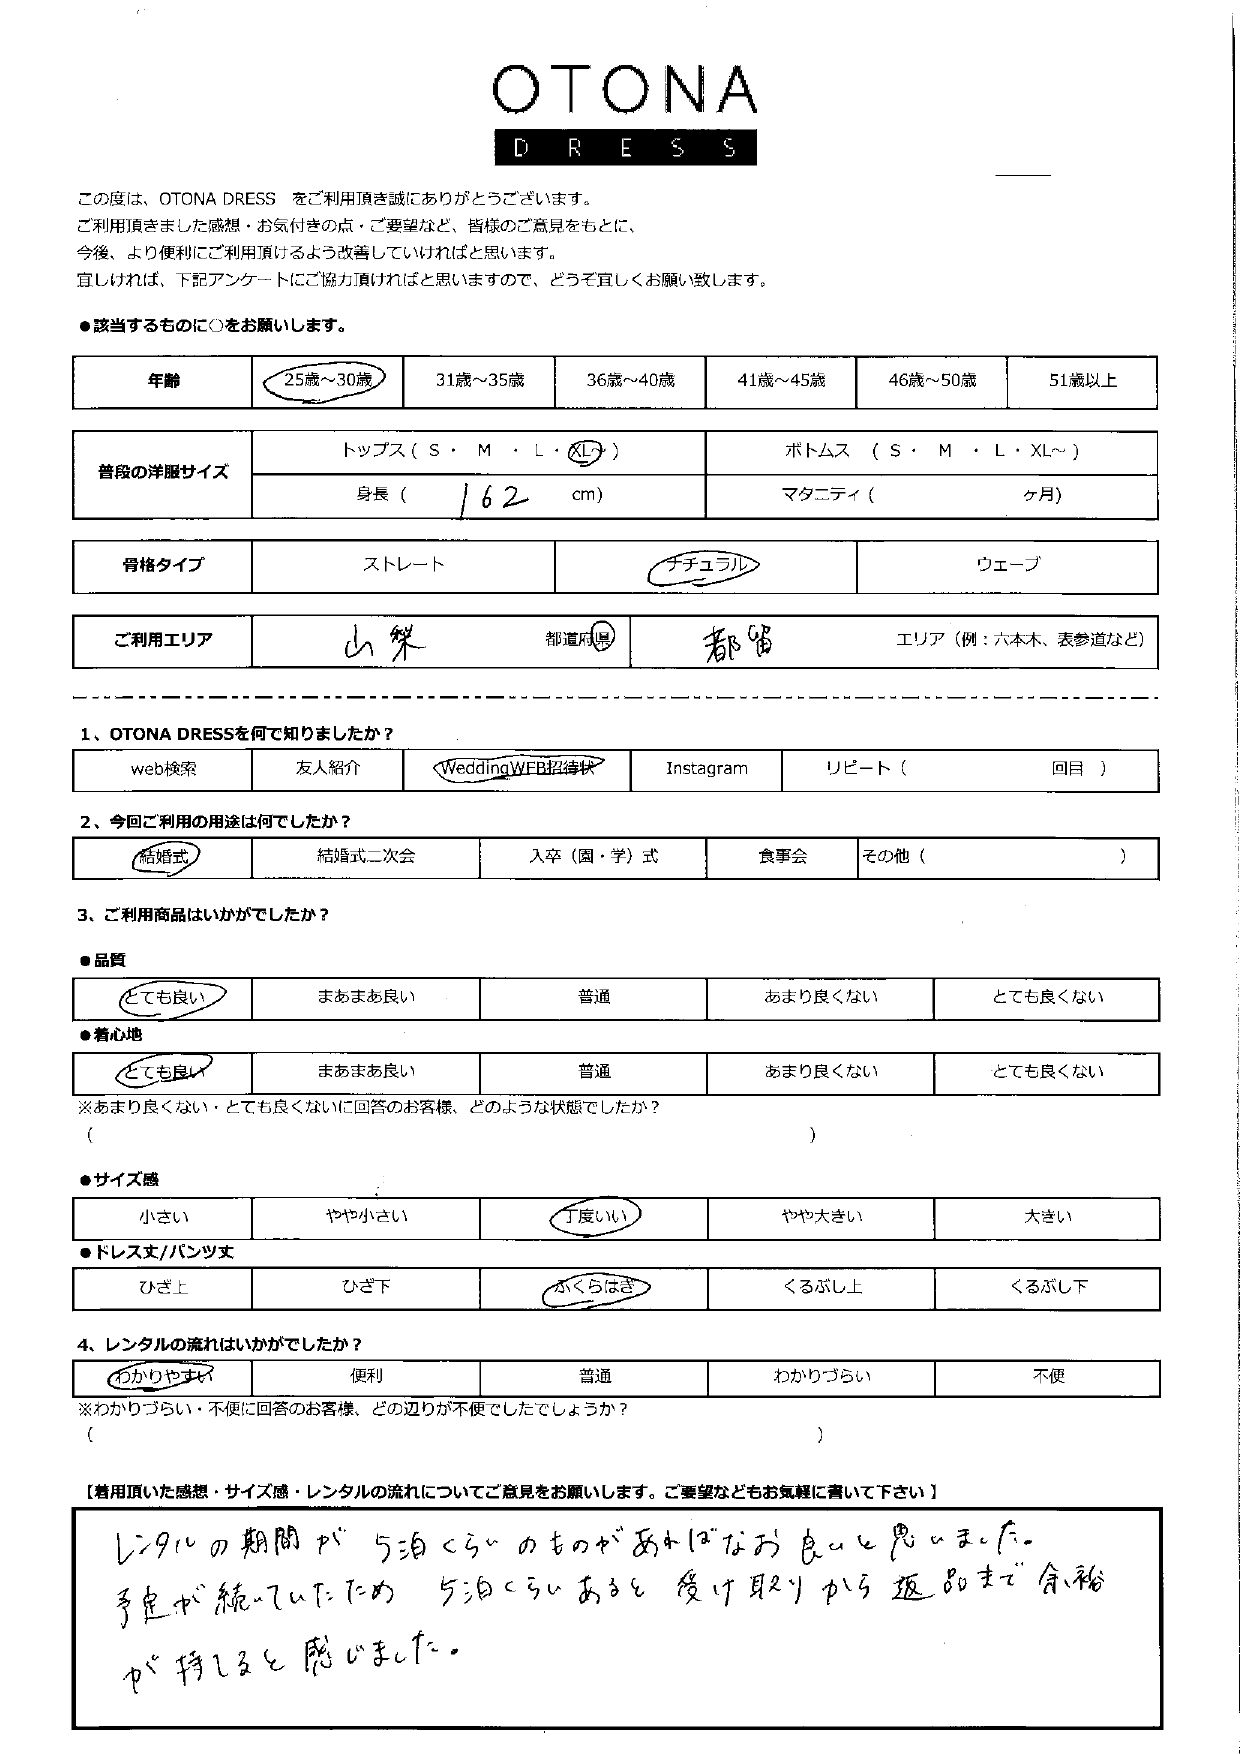 OTONA
DRESS
この度は、OTONA DRESS　をご利用頂き誠にありがとうございます。
ご利用頂きました感想・お気付きの点・ご要望など、皆様のご意見をもとに、
今後、より便利にご利用頂けるよう改善していければと思います。
宜しければ、下記アンケートにご協力頂ければと思いますので、どうぞ宜しくお願い致します。
●該当するものに○をお願いします。
年齢 25歳～30歳 31歳～35歳 36歳～40歳 41歳～45歳 46歳～50歳 51歳以上
普段の洋服サイズ
トップス ( S ・ M ・ L ・ XL～ ) ボトムス ( S ・ M ・ L ・ XL～ )
身長 ( 162 cm) マタニティ ( ヶ月)
骨格タイプ ストレート ナチュラル ウェーブ
ご利用エリア 山梨 都道府県 都留 エリア（例：六本木、表参道など）
1、OTONA DRESSを何で知りましたか？
web検索 友人紹介 WeddingWEB招待状 Instagram リピート（ 回目 ）
2、今回ご利用の用途は何でしたか？
結婚式 結婚式二次会 入卒（園・学）式 食事会 その他（ ）
3、ご利用商品はいかがでしたか？
●品質
とても良い まあまあ良い 普通 あまり良くない とても良くない
●着心地
とても良い まあまあ良い 普通 あまり良くない とても良くない
※あまり良くない・とても良くないに回答のお客様、どのような状態でしたか？
（ ）
●サイズ感
小さい やや小さい 丁度いい やや大きい 大きい
●ドレス丈/パンツ丈
ひざ上 ひざ下 ふくらはぎ くるぶし上 くるぶし下
4、レンタルの流れはいかがでしたか？
わかりやすい 便利 普通 わかりづらい 不便
※わかりづらい・不便に回答のお客様、どの辺りが不便でしたでしょうか？
（ ）
【着用頂いた感想・サイズ感・レンタルの流れについてご意見をお願いします。ご要望などもお気軽に書いて下さい】
レンタルの期間が 5泊くらいのものがあればなお良いと思いました。
予定が続いていたため 5泊くらいあると受け取りから返品まで余裕
が持てると感じました。